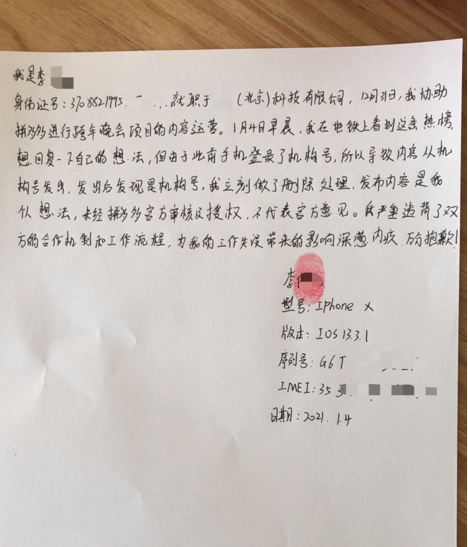 我是李
身份证号:3708821995. 就职于 (北京)科技有限公司,12月31日,我协助
拼多多进行跨年晚会项目的内容运营。1月4日早晨,我在地铁上看到这条热榜,
想回复一下自己的想法,但由于此前手机登录了机构号,所以导致内容从机
构号发出,发出后发现是机构号,我立刻做了删除处理,发布内容是我
个人想法,未经拼多多官方审核及授权,不代表官方意见。我严重违背了双
方的合作机制和工作流程,为我的工作失误带来的影响深感内疚 万分抱歉!
李
型号:IPhone X
版本:IOS 13.3.1
序列号:G6T
IMEI:35 3
日期:2021.1.4